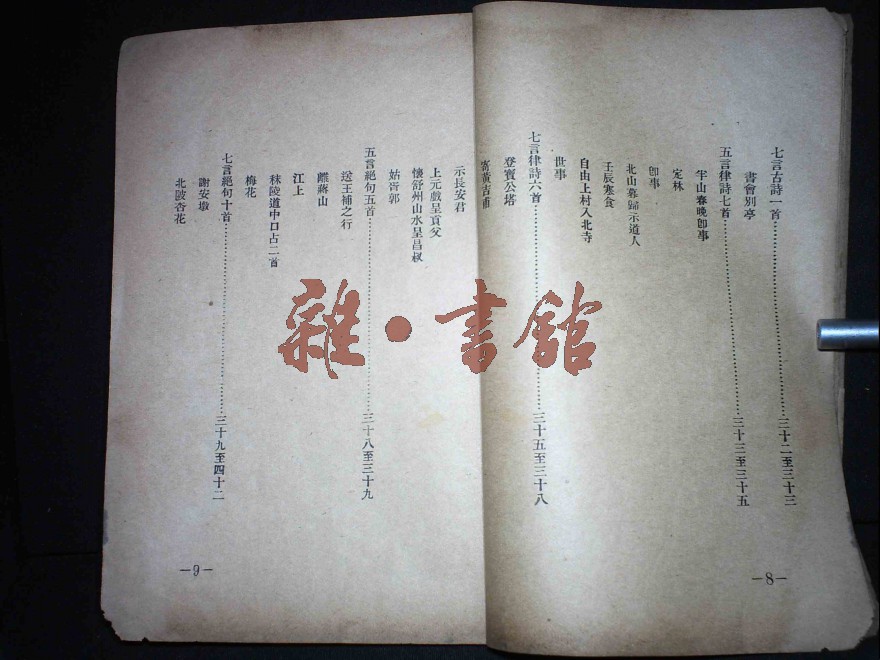 七言古詩一首……三十二至三十三
書會別亭
五言律詩七首……三十三至三十五
半山春晚卽事
定林
卽事
北山暮歸示道人
壬辰寒食
自由上村入北寺
世事
七言律詩六首……三十五至三十八
登寶公塔
寄黃吉甫
示長安君
上元戲呈貢父
懷舒州山水呈昌叔
姑胥郭
五言絕句五首……三十八至三十九
送王補之行
離蔣山
江上
秣陵道中口占二首
梅花
七言絕句十首……三十九至四十二
謝安墩
北陂杏花
—8—
—9—
雜·書館